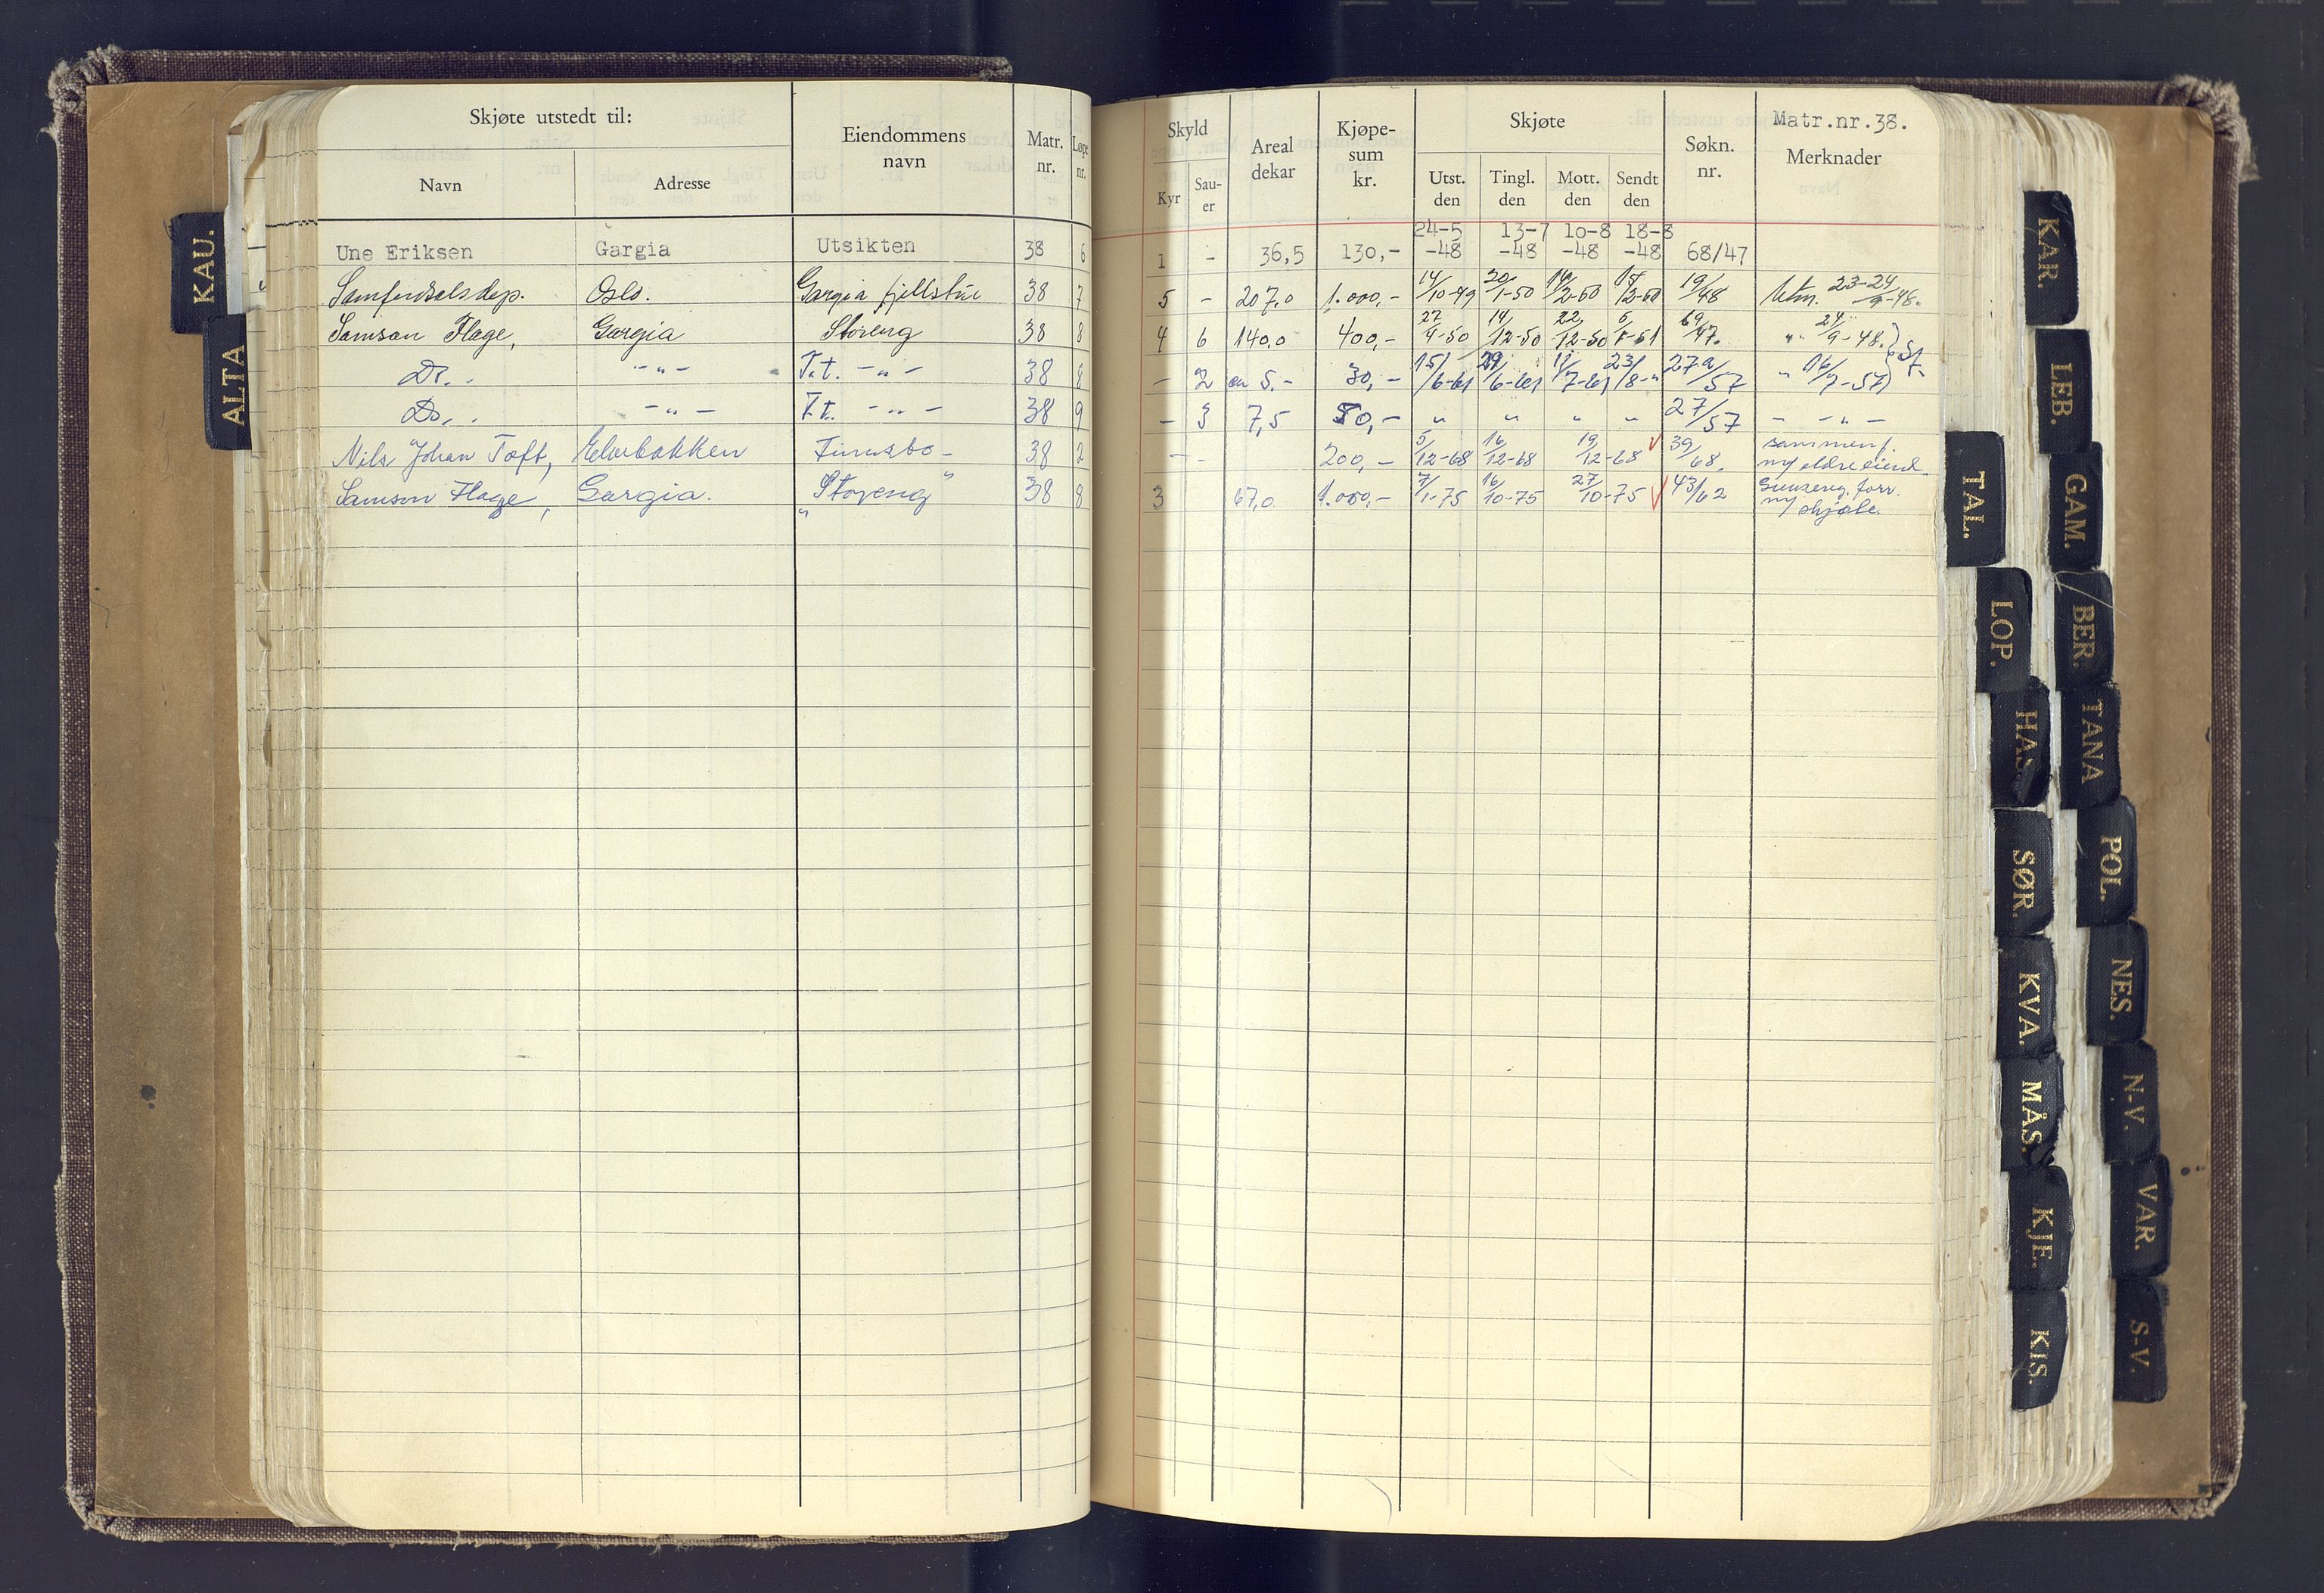 Skjøte utstedt til:
Navn
Adresse
Eiendommens
navn
Matr.
nr.
Løpe
nr.
Skyld
Kyr
Sau-
er
Areal
dekar
Kjøpe-
sum
kr.
Skjøte
Utst.
den
Tingl.
den
Mott.
den
Sendt
den
Søkn.
nr.
Matr.nr.38.
Merknader
24-5 13-7 10-8 18-8
Une Eriksen Gargia Utsikten 38 6 1 - 36,5 130,- -48 -48 -48 -48 68/47
Samferdselsdep. Oslo. Gargia fjellstue 38 7 5 - 207,0 1.000,- 14/10-49 20/1-50 14/2-50 17/2-50 19/48 Utm. 23-24/9-48.
Samson Hage, Gargia Storeng 38 8 4 6 140,0 400,- 27/4-50 14/12-50 22/12-50 5/1-51 69/47. " 24/9-48.
Do. -"- T.t. -"- 38 8 - 2 ca 5.- 30,- 15/6-61 29/6-61 11/7-61 23/8-" 27a/57 " 16/7-57
Do. -"- T.t. -"- 38 9 - 3 7,5 50,- " " " " 27/57 - -"-
Nils Johan Toft, Elvebakken Furusbo- 38 2 - - 200,- 5/12-68 16/12-68 19/12-68 39/68. sammenf.
m/ eldre eiend.
Samson Hage, Gargia. "Storeng" 38 8 3 67,0 1.000,- 7/1-75 16/10-75 27/10-75 43/62 Grensereg. forr.
m/ skjøte.
KAU.
ALTA
KAR.
LEB.
GAM.
BER.
TANA
POL.
NES.
N-V.
VAR.
S-V.
TAL.
LOP.
HAS.
SØR.
KVA.
MÅS.
KJE.
KIS.